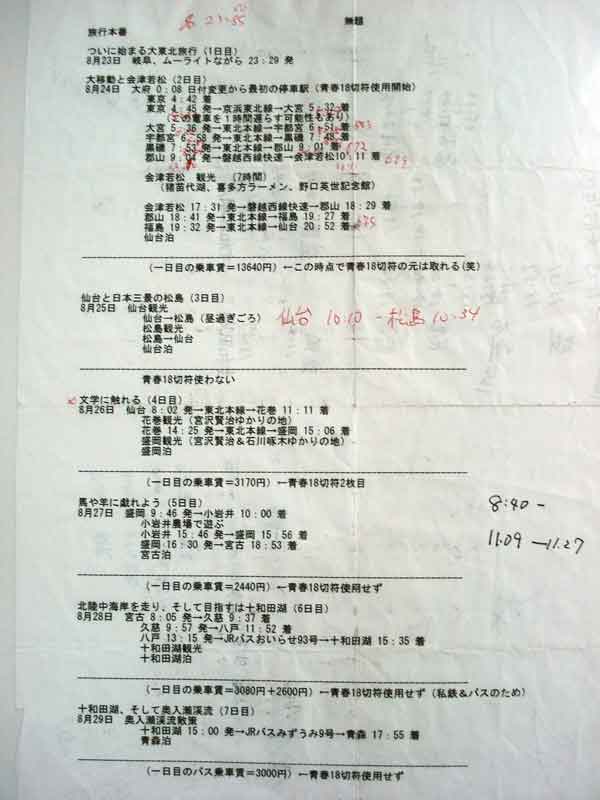 21:55
無題
旅行本番
ついに始まる大東北旅行(1日目)
8月23日 岐阜、ムーライトながら 23:29 発
大移動と会津若松(2日目)
8月24日 大府 0:08 日付変更から最初の停車駅(青春18切符使用開始)
東京 4:42 着
東京 4:45 発→京浜東北線→大宮 5:32 着
(この電車を1時間遅らす可能性もあり)
大宮 5:36 発→東北本線→宇都宮 6:51 着
宇都宮 6:58 発→東北本線→黒磯 7:48 着
黒磯 7:53 発→東北本線→郡山 9:01 着
郡山 9:04 発→磐越西線快速→会津若松10:11 着
会津若松 観光 (7時間)
(猪苗代湖、喜多方ラーメン、野口英世記念館)
会津若松 17:31 発→磐越西線快速→郡山 18:29 着
郡山 18:41 発→東北本線→福島 19:27 着
福島 19:32 発→東北本線→仙台 20:52 着
仙台泊
(一日目の乗車賃=13640円)←この時点で青春18切符の元は取れる(笑)
仙台と日本三景の松島(3日目)
8月25日 仙台観光
仙台→松島(昼過ぎごろ) 仙台 10:10 - 松島 10:34
松島観光
松島→仙台
仙台泊
青春18切符使わない
×文学に触れる(4日目)
8月26日 仙台 8:02 発→東北本線→花巻 11:11 着
花巻観光(宮沢賢治ゆかりの地)
花巻 14:25 発→東北本線→盛岡 15:06 着
盛岡観光(宮沢賢治&石川啄木ゆかりの地)
盛岡泊
(一日目の乗車賃=3170円)←青春18切符2枚目
馬や羊に戯れよう(5日目)
8月27日 盛岡 9:46 発→小岩井 10:00 着
小岩井農場で遊ぶ
小岩井 15:46 発→盛岡 15:56 着
盛岡 16:30 発→宮古 18:53 着
宮古泊
8:40 -
11:09 → 11:27
(一日目の乗車賃=2440円)←青春18切符使用せず
北陸中海岸を走り、そして目指すは十和田湖(6日目)
8月28日 宮古 8:05 発→久慈 9:37 着
久慈 9:57 発→八戸 11:52 着
八戸 13:15 発→JRバスおいらせ93号→十和田湖 15:35 着
十和田湖観光
十和田湖泊
(一日目の乗車賃=3080円+2600円)←青春18切符使用せず(私鉄&バスのため)
十和田湖、そして奥入瀬渓流(7日目)
8月29日 奥入瀬渓流散策
十和田湖 15:00 発→JRバスみずうみ9号→青森 17:55 着
青森泊
(一日目のバス乗車賃=3000円)←青春18切符使用せず